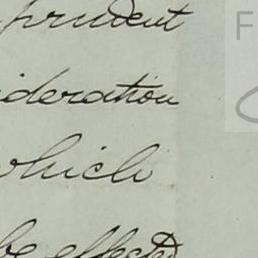 prudent
ideration
which
be effected